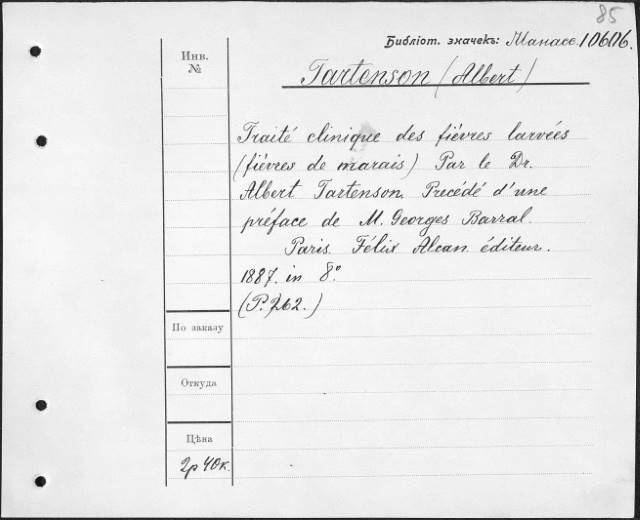 85
Библіот. значекъ: Манасе. 10606.
Инв.
№
Tartenson (Albert)
Traité clinique des fièvres larvées
(fièvres de marais) Par le Dr.
Albert Tartenson. Precédé d'une
préface de M. Georges Barral.
Paris. Félix Alcan. éditeur.
1887. in 8º
(P. 262.)
По заказу
Откуда
Цѣна
2р 40к.